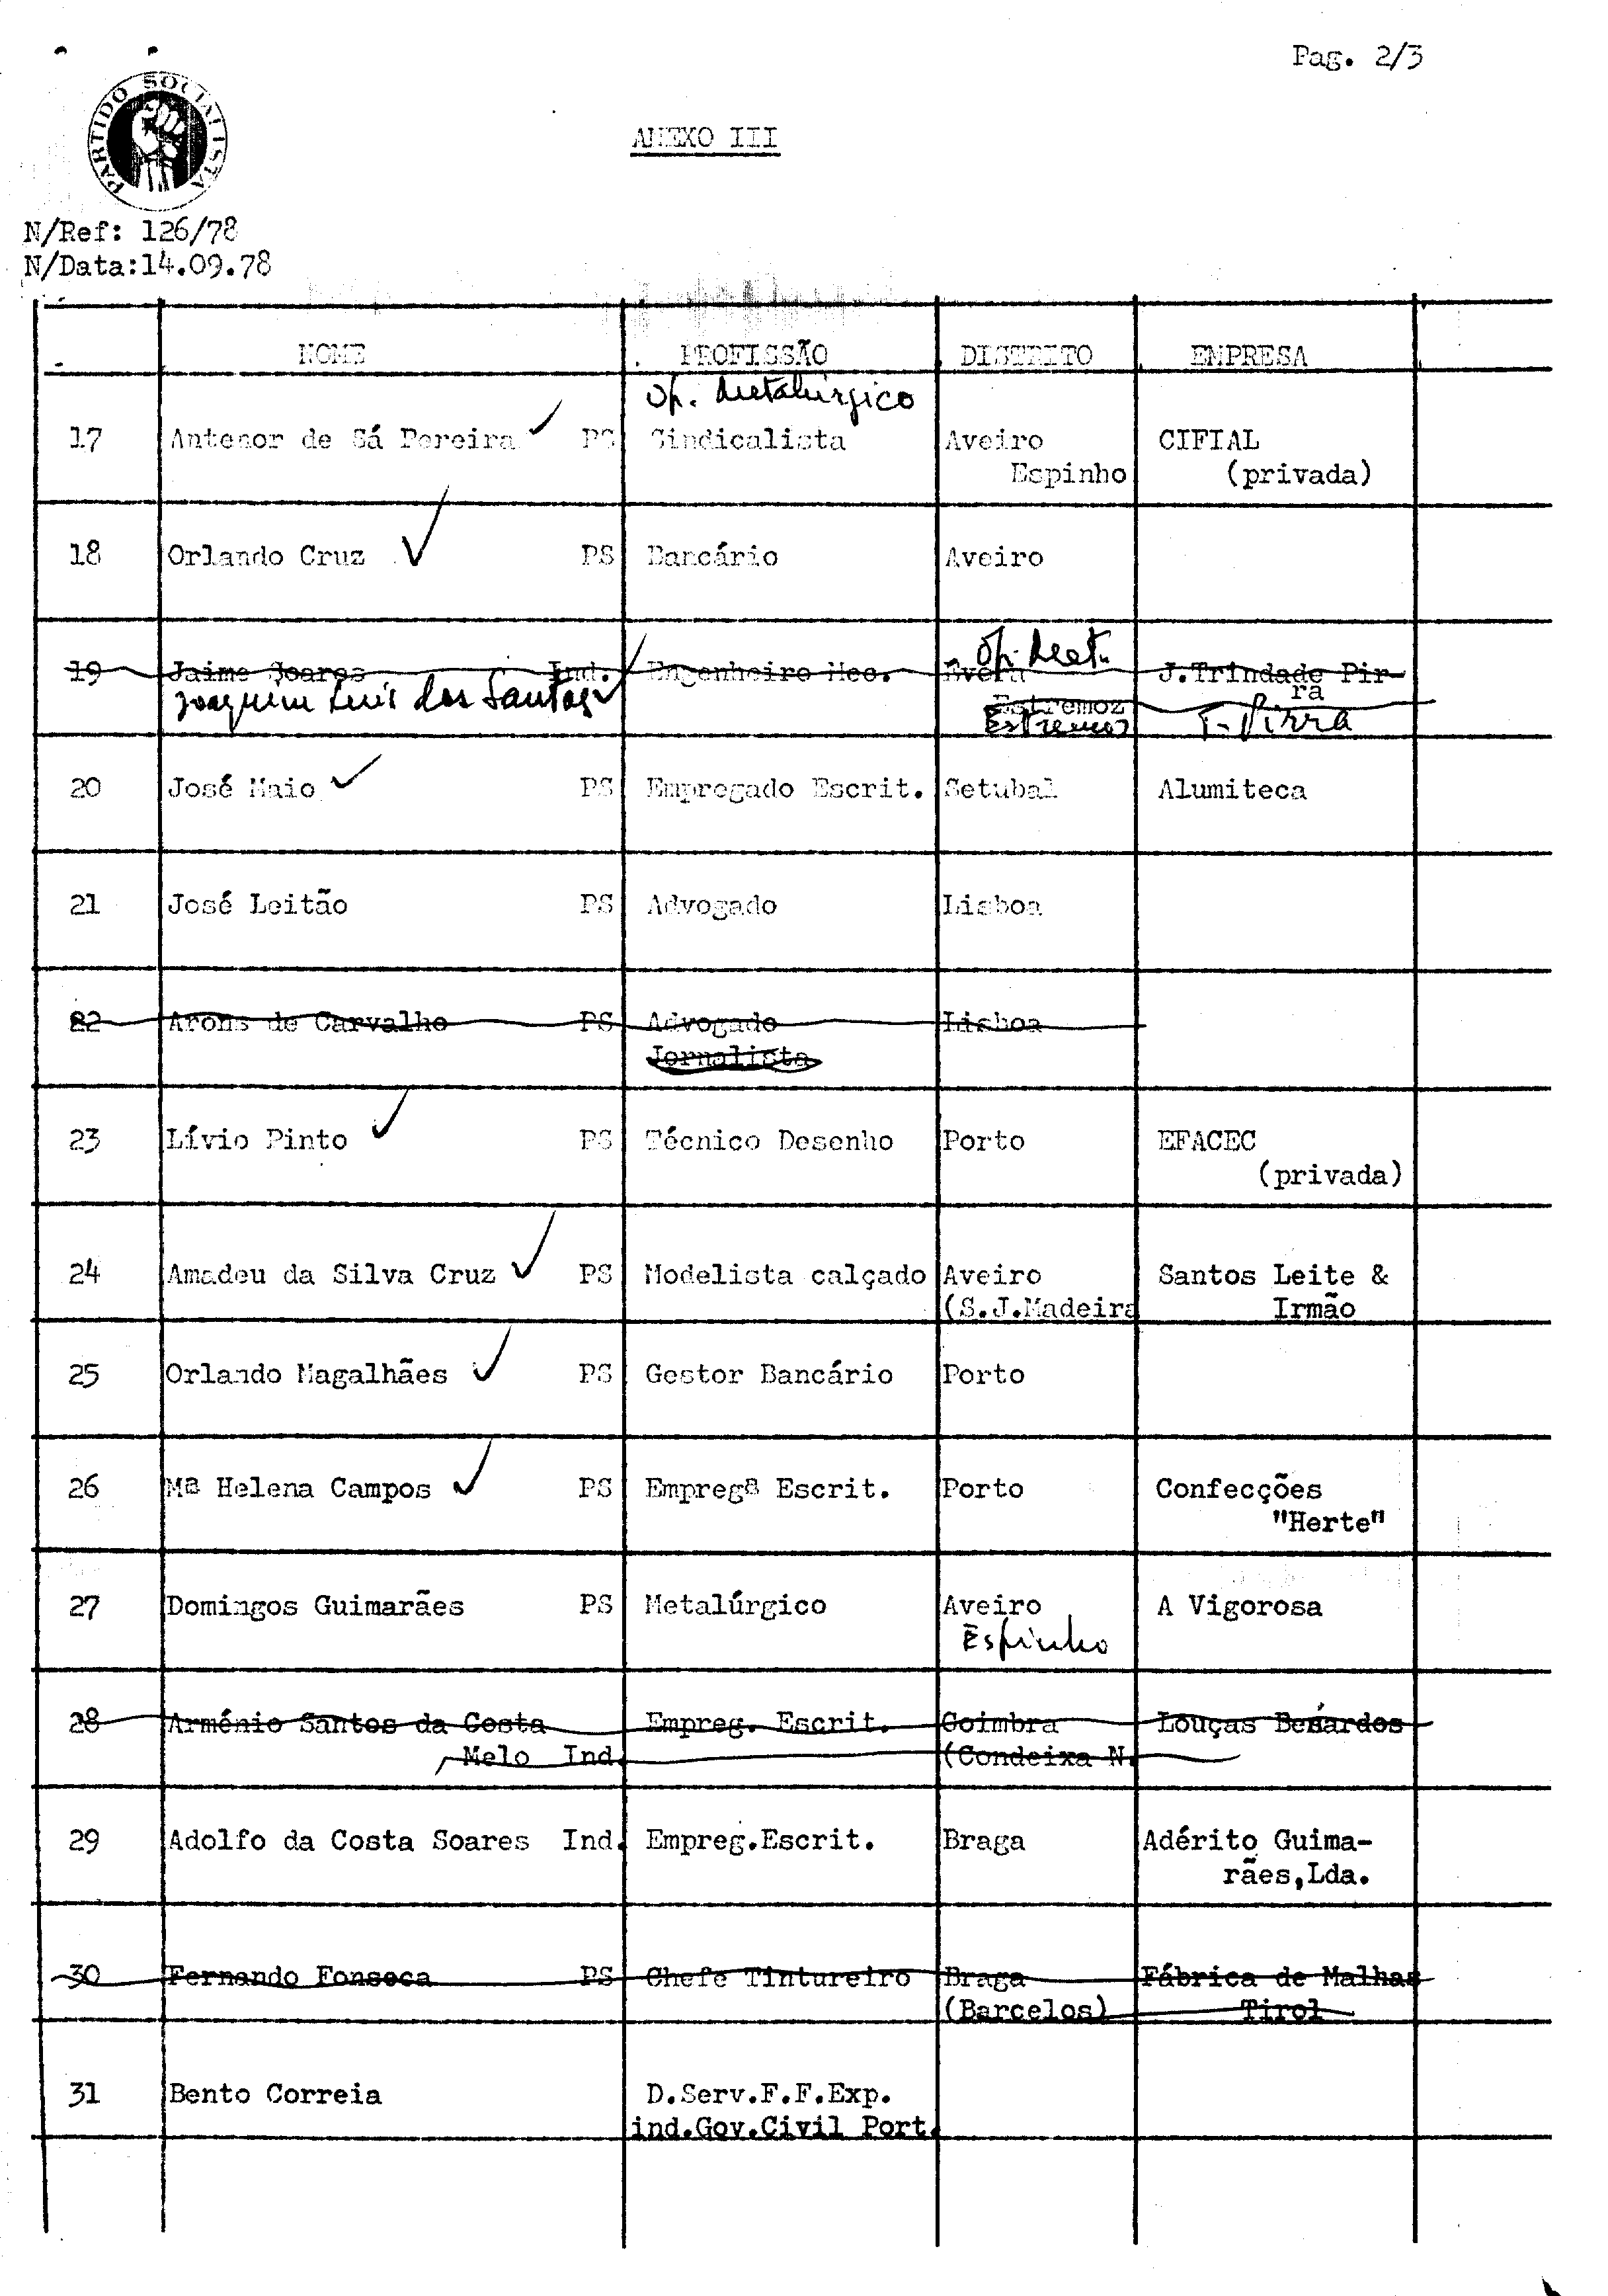 Pag. 2/3
PARTIDO SOCIALISTA
ANEXO III
N/Ref: 126/78
N/Data:14.09.78
NOME PROFISSÃO DISTRITO EMPRESA
Op. Metalúrgico
17 Antenor de Sá Pereira PS Sindicalista Aveiro CIFIAL
Espinho (privada)
18 Orlando Cruz PS Bancário Aveiro
Op. Met.
19 Jaime Soares Ind. Engenheiro Mec. Évora J.Trindade Pir-
ra
Joaquim Luis dos Santos Estremoz
Estremoz T. Pirra
20 José Maio PS Empregado Escrit. Setubal Alumiteca
21 José Leitão PS Advogado Lisboa
22 Arons de Carvalho PS Advogado Lisboa
Jornalista
23 Lívio Pinto PS Técnico Desenho Porto EFACEC
(privada)
24 Amadeu da Silva Cruz PS Modelista calçado Aveiro Santos Leite &
(S.J.Madeira Irmão
25 Orlando Magalhães PS Gestor Bancário Porto
26 Mª Helena Campos PS Empregª Escrit. Porto Confecções
"Herte"
27 Domingos Guimarães PS Metalúrgico Aveiro A Vigorosa
Espinho
28 Arménio Santos da Costa Empreg. Escrit. Coimbra Louças
Melo Ind. (Condeixa N.
29 Adolfo da Costa Soares Ind. Empreg.Escrit. Braga Adérito Guima-
rães,Lda.
30 Fernando Fonseca PS Chefe Tintureiro Braga Fábrica de Malhas
(Barcelos) Tirol
31 Bento Correia D.Serv.F.F.Exp.
ind.Gov.Civil Port.